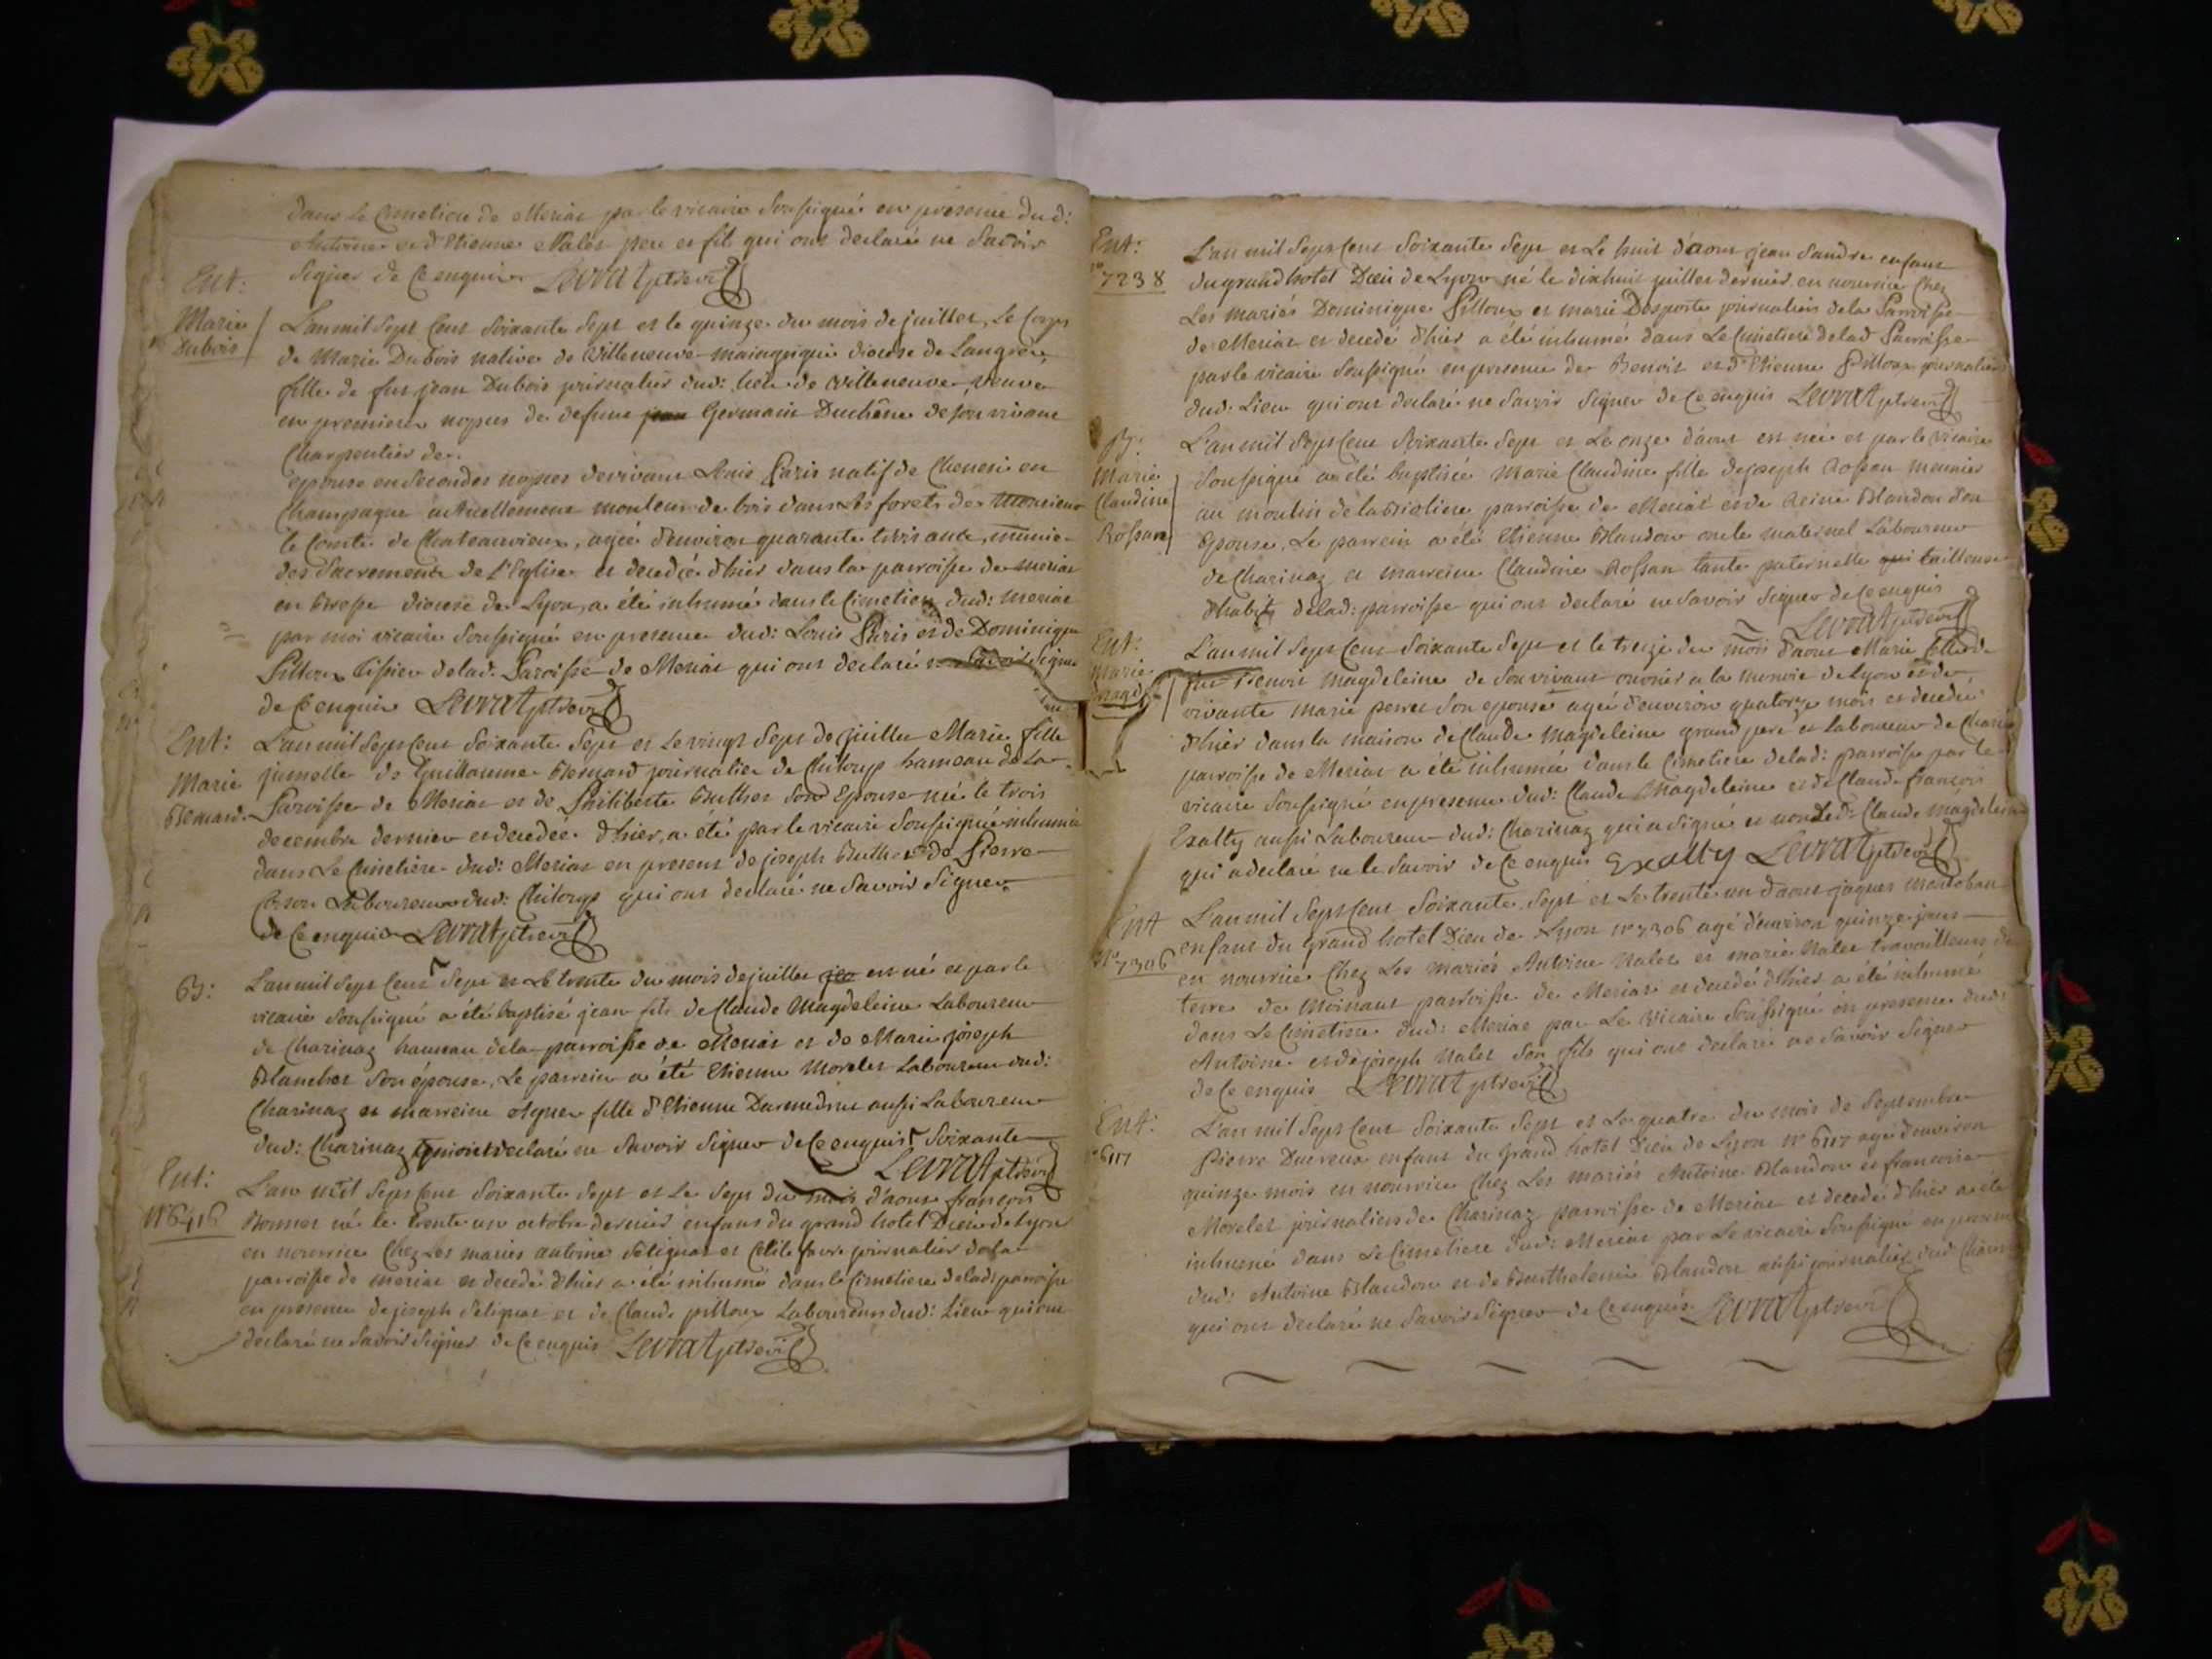 dans Le Cimetiere de Meriat par le vicaire Soussigné en presence dud:
Antoine et d'Etienne Nalet pere et fils qui ont declaré ne Savoir
Signer de Ce enquis Levrat ptre vic
Ent:
Marie
Dubois
L'an mil Sept Cent Soixante Sept et le quinze du mois de juillet, Le Corps
de Marie Dubois native de Villeneuve diocese de Langres,
fille de fut jean Dubois journalier dud: lieu de Villeneuve veuve
en premieres nopces de defunt Germain Duchêne de son vivant
Charpentier de
epouse en Secondes nopces de vivant Louis Paris natif de en
Champagne actuellement mouleur de bois dans Les forets de Monsieur
le Comte de Chateauvieux, agée d'environ quarante trois ans, munie
des Sacrements de l'Eglise et decedée d'hier dans la parroisse de meriat
en Bresse diocese de Lyon, a été inhumé dans le Cimetiere dud: meriat
par moi vicaire Soussigné en presence dud: Louis Paris et de Dominique
Pilloux tissier de lad: Paroisse de Meriat qui ont declaré ne Savoir Signer
de Ce enquis Levrat ptre vic
Ent:
Marie
Bernard
L'an mil Sept Cent Soixante Sept et Le vingt Sept de juillet Marie fille
jumelle de Guillaume Bernard journalier de Chiloup hameau de La
Parroisse de Meriat et de Philiberte Buthet Son Epouse née le trois
decembre dernier et decedée d'hier, a été par le vicaire Soussigné inhumée
dans Le Cimetiere dud: Meriat en present de joseph Buthet et de Pierre
Laboureurs dud: Chiloup qui ont declaré ne Savoir Signer
de Ce enquis Levrat ptre vic
B:
L'an mil Sept Cent Sept et Le trente du mois de juillet est né et par le
vicaire Soussigné a été baptisé jean fils de Claude Magdeleine Laboureur
de Charinaz hameau de la parroisse de Meriat et de Marie joseph
Blanchet Son épouse, Le parrein a été Etienne Morelet Laboureur dud:
Charinaz et marreine fille d'Etienne aussi Laboureur
dud: Charinaz qui ont declaré ne Savoir Signer de Ce enquis Soixante
Levrat ptre vic
Ent:
N° 6416
L'an mil Sept Cent Soixante Sept et Le Sept du mois d'aout françois
Bonnet né le trente un octobre dernier enfant du grand hotel Dieu de Lyon
en nourrice Chez Les mariés antoine Selignat et favre journalier de la
parroisse de meriat et decedé d'hier a été inhumé dans le Cimetiere de lad: parroisse
en presence de joseph Selignat et de Claude pilloux Laboureurs dud: Lieu qui ont
declaré ne Savoir Signer de Ce enquis Levrat ptre vic
Ent:
n° 7238
L'an mil Sept Cent Soixante Sept et Le huit d'aout jean Sandre enfant
du grand hotel Dieu de Lyon né le dixhuit juillet dernier en nourrice Chez
Les mariés Dominique Pilloux et marie Desporte journaliers de la Parroisse
de Meriat et decedé d'hier a été inhumé dans Le Cimetiere de lad Parroisse
par le vicaire Soussigné en presence de Benoit et d'Etienne Pilloux journaliers
dud: Lieu qui ont declaré ne Savoir Signer de Ce enquis Levrat ptre vic
B:
Marie
Claudine
Rossan
L'an mil Sept Cent Soixante Sept et Le onze d'aout est née et par le vicaire
Soussigné a été baptisée Marie Claudine fille de joseph Rossan meunier
au moulin de la parroisse de Meriat et de Reine Blandon Son
Epouse, Le parrein a été Etienne Blandon oncle maternel Laboureur
de Charinaz et marreine Claudine Rossan tante paternelle tailleuse
d'habits de lad: parroisse qui ont declaré ne Savoir Signer de Ce enquis
Levrat ptre vic
Ent:
Marie
Magd
L'an mil Sept Cent Soixante Sept et le treize du mois d'aout Marie fille de
fut Benoit Magdeleine de Son vivant ouvrier a la monoie de Lyon et de
vivante Marie perret Son epouse agée d'environ quatorze mois et decedée
d'hier dans la maison de Claude Magdeleine grand pere et laboureur de Charinaz
parroisse de Meriat a été inhumée dans le Cimetiere de lad: parroisse par le
vicaire Soussigné en presence dud: Claude Magdeleine et de Claude françois
Exalty aussi Laboureur dud: Charinaz qui a Signé et non Led: Claude Magdeleine
qui a declaré ne le Savoir de Ce enquis Exalty Levrat ptre vic
Ent
N° 7306
L'an mil Sept Cent Soixante Sept et Le trente un d'aout jaques Montoban
enfant du Grand hotel Dieu de Lyon n° 7306 agé d'environ quinze jours
en nourrice Chez Les mariés Antoine Nalet et marie Nalet travailleurs de
terre de Moinant parroisse de Meriat et decedé d'hier a été inhumé
dans Le Cimetiere dud: Meriat par Le Vicaire Soussigné en presence dud:
Antoine et de joseph Nalet Son fils qui ont declaré ne Savoir Signer
de Ce enquis Levrat ptre vic
Ent:
n° 6117
L'an mil Sept Cent Soixante Sept et Le quatre du mois de Septembre
Pierre Ducreux enfant du Grand hotel Dieu de Lyon n° 6117 agé d'environ
quinze mois en nourrice Chez Les mariés Antoine Blandon et francoise
Morelet journaliers de Charinaz parroisse de Meriat et decedé d'hier a été
inhumé dans Le Cimetiere dud: Meriat par Le vicaire Soussigné en presence
dud: Antoine Blandon et de Barthelemi Blandon aussi journalier dud: Charinaz
qui ont declaré ne Savoir Signer de Ce enquis Levrat ptre vic